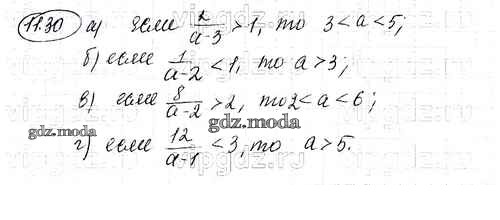 11.30 а) если 2/(a-3) > 1, то 3 < a < 5;
б) если 1/(a-2) < 1, то a > 3;
в) если 8/(a-2) > 2, то 2 < a < 6;
gdz.moda gdz.moda
г) если 12/(a-1) < 3, то a > 5.